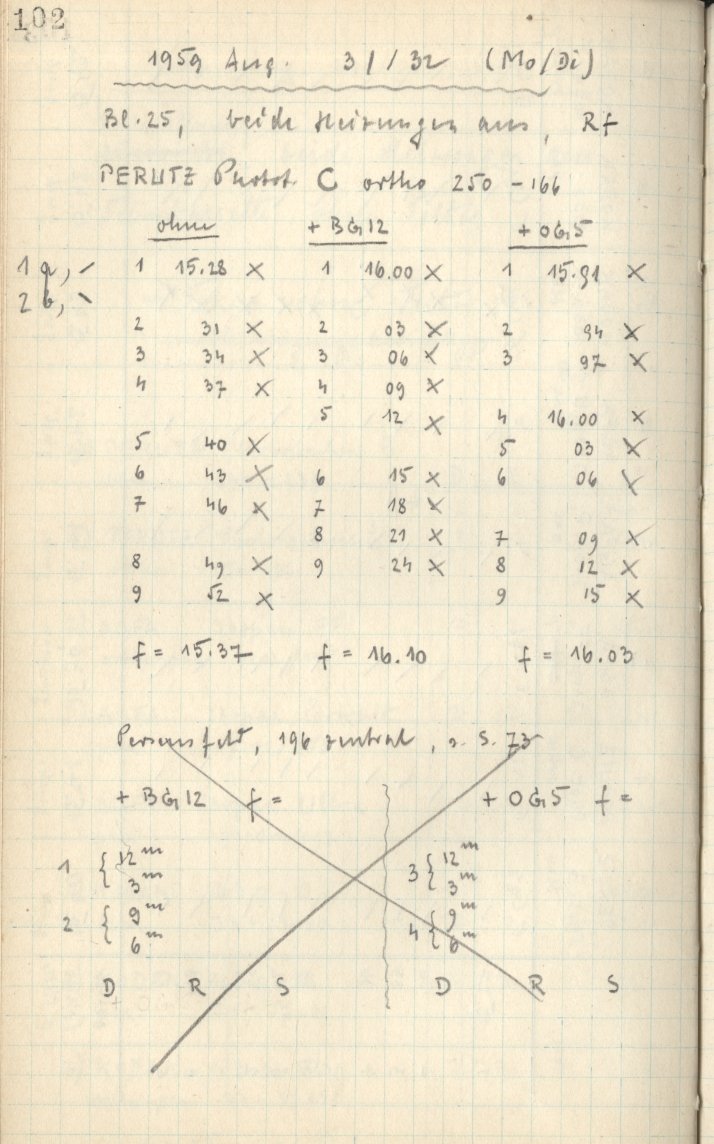 102
1959 Aug. 31/32 (Mo/Di)
Bl. 25, beide Heizungen aus, Rf
PERUTZ Photot. C ortho 250 - 166
ohne + BG12 + OG5
1 a, 1 15.28 × 1 16.00 × 1 15.91 ×
2 b,
2 31 × 2 03 × 2 94 ×
3 34 × 3 06 × 3 97 ×
4 37 × 4 09 ×
5 12 × 4 16.00 ×
5 40 × 5 03 ×
6 43 × 6 15 × 6 06 ×
7 46 × 7 18 ×
8 21 × 7 09 ×
8 49 × 9 24 × 8 12 ×
9 52 × 9 15 ×
f = 15.37 f = 16.10 f = 16.03
Perseusfeld, 196 zentral, s. S. 73
+ BG12 f = + OG5 f =
1 { 12 m 3 { 12 m
3 m 3 m
2 { 9 m 4 { 9 m
6 m 6 m
D R S D R S